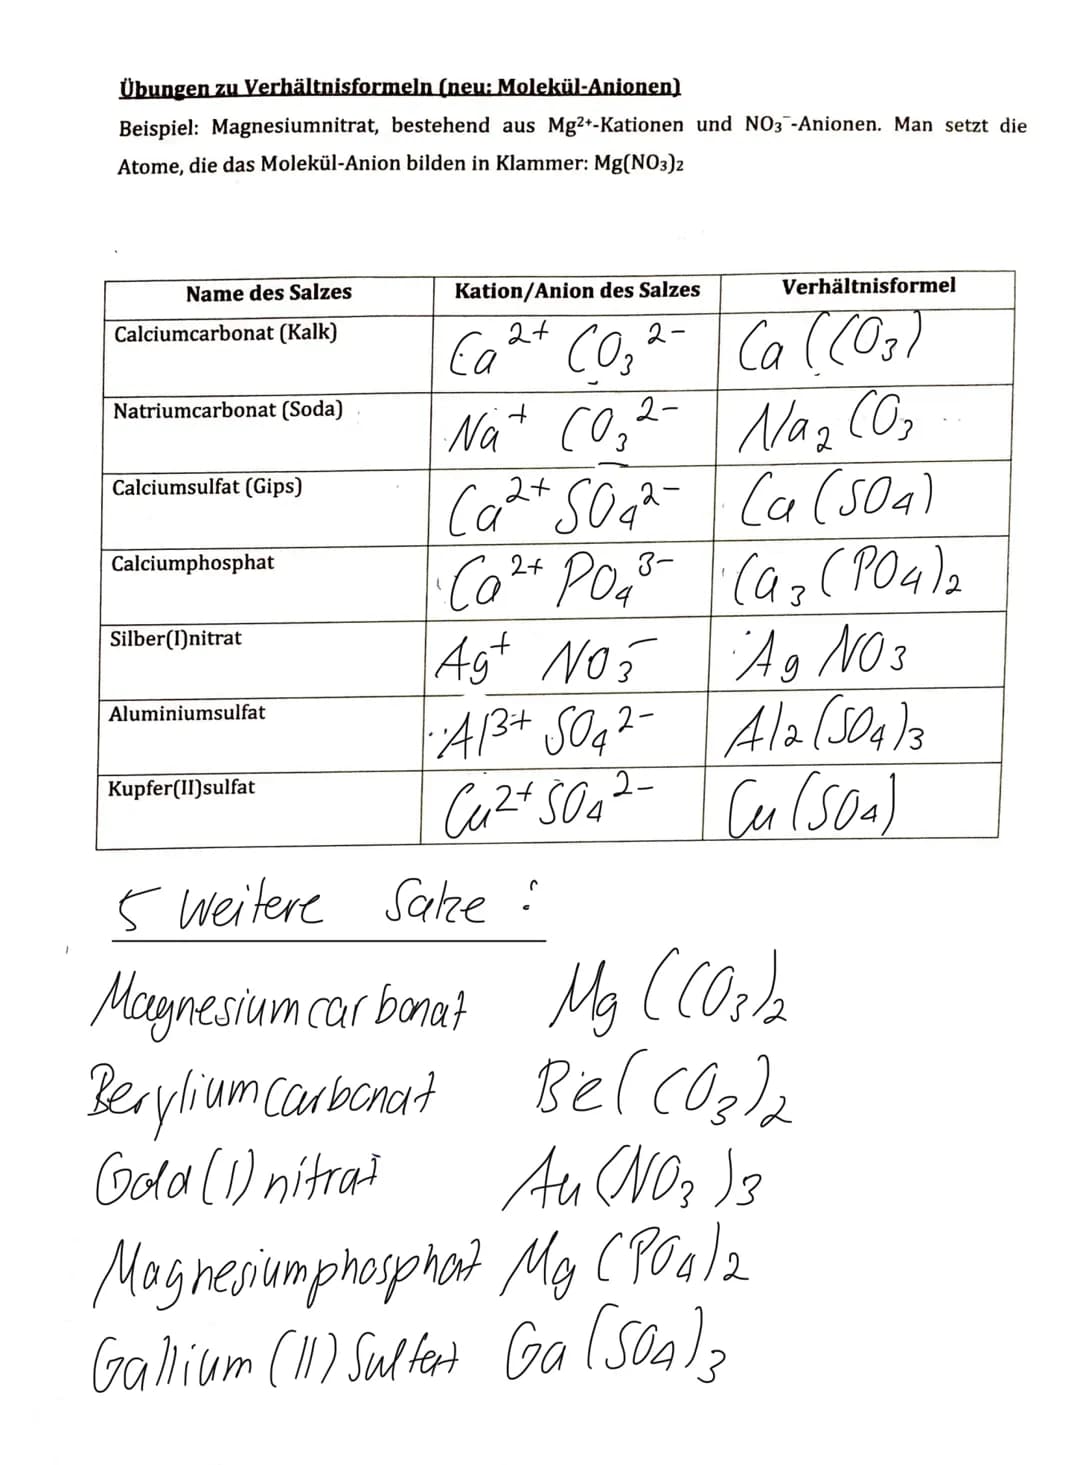 Übungen zu Verhältnisformeln (neu: Molekül-Anionen)
Beispiel: Magnesiumnitrat, bestehend aus Mg²⁺-Kationen und NO₃⁻-Anionen. Man setzt die
Atome, die das Molekül-Anion bilden in Klammer: Mg(NO₃)₂
Name des Salzes Kation/Anion des Salzes Verhältnisformel
Calciumcarbonat (Kalk) Ca²⁺ CO₃²⁻ Ca(CO₃)
Natriumcarbonat (Soda) Na⁺ CO₃²⁻ Na₂CO₃
Calciumsulfat (Gips) Ca²⁺ SO₄²⁻ Ca(SO₄)
Calciumphosphat Ca²⁺ PO₄³⁻ Ca₃(PO₄)₂
Silber(I)nitrat Ag⁺ NO₃⁻ AgNO₃
Aluminiumsulfat Al³⁺ SO₄²⁻ Al₂(SO₄)₃
Kupfer(II)sulfat Cu²⁺ SO₄²⁻ Cu(SO₄)
5 Weitere Salze:
Magnesiumcarbonat Mg(CO₃)₂
Beryliumcarbonat Be(CO₃)₂
Gold(I)nitrat Au(NO₃)₃
Magnesiumphosphat Mg(PO₄)₂
Gallium(II)Sulfat Ga(SO₄)₃